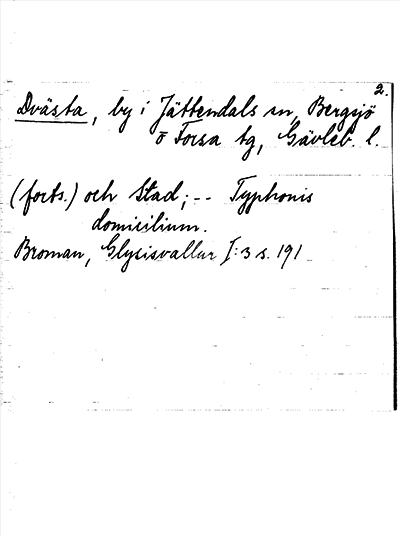 2.
Dvästa, by i Jättendals sn, Bergsjö
o Forsa tg, Gävleb. l.
(forts.) och Stad; -- Typhonis
domicilium.
Broman, Glysisvallur I:3 s. 191